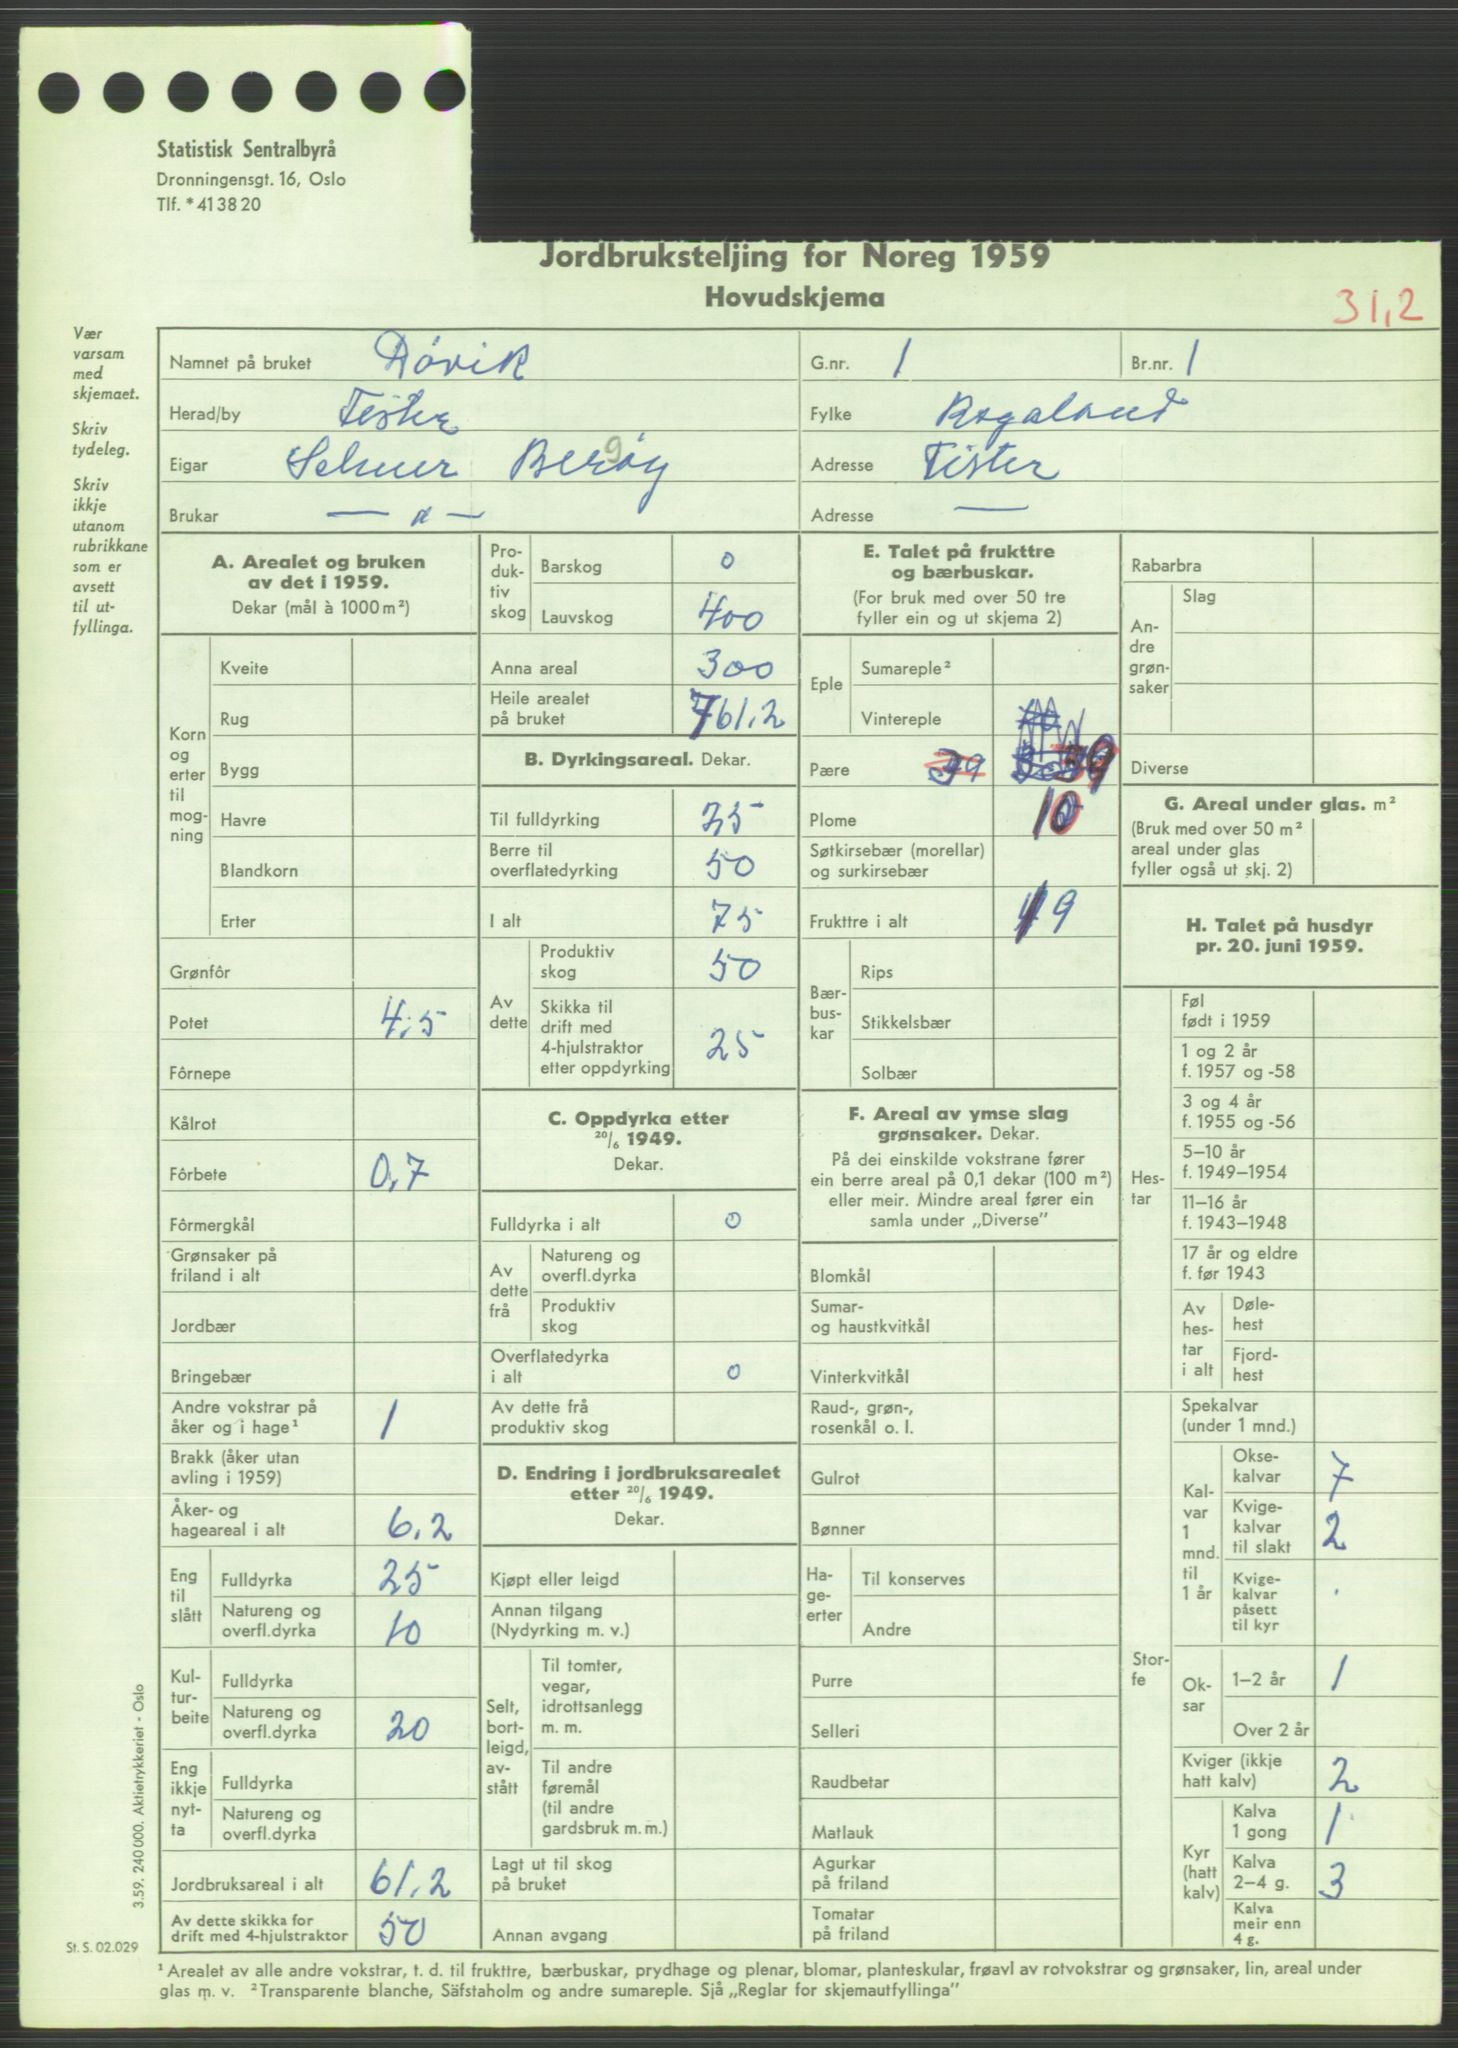 Statistisk Sentralbyrå
Dronningensgt. 16, Oslo
Tlf. * 41 38 20
Jordbruksteljing for Noreg 1959
Hovudskjema
31,2
Vær
varsam
med
skjemaet.
Skriv
tydeleg.
Skriv
ikkje
utanom
rubrikkane
som er
avsett
til ut-
fyllinga.
Namnet på bruket
G.nr. 1
Br.nr. 1
Herad/by Fister
Fylke Rogaland
Eigar
Adresse Fister
Brukar — " —
Adresse —
A. Arealet og bruken
av det i 1959.
Dekar (mål à 1000 m²)
Korn
og
erter
til
mog-
ning
Kveite
Rug
Bygg
Havre
Blandkorn
Erter
Grønfôr
Potet 4,5
Fôrnepe
Kålrot
Fôrbete 0,7
Fôrmergkål
Grønsaker på
friland i alt
Jordbær
Bringebær
Andre vokstrar på
åker og i hage¹ 1
Brakk (åker utan
avling i 1959)
Åker- og
hageareal i alt 6,2
Eng
til
slått
Fulldyrka 25
Natureng og
overfl.dyrka 10
Kul-
tur-
beite
Fulldyrka
Natureng og
overfl.dyrka 20
Eng
ikkje
nyt-
ta
Fulldyrka
Natureng og
overfl.dyrka
Jordbruksareal i alt 61,2
Av dette skikka for
drift med 4-hjulstraktor 50
Pro-
duk-
tiv
skog
Barskog 0
Lauvskog 400
Anna areal 300
Heile arealet
på bruket 761,2
B. Dyrkingsareal. Dekar.
Til fulldyrking 25
Berre til
overflatedyrking 50
I alt 75
Av
dette
Produktiv
skog 50
Skikka til
drift med
4-hjulstraktor
etter oppdyrking 25
C. Oppdyrka etter
20/6 1949.
Dekar.
Fulldyrka i alt 0
Av
dette
frå
Natureng og
overfl.dyrka
Produktiv
skog
Overflatedyrka
i alt 0
Av dette frå
produktiv skog
D. Endring i jordbruksarealet
etter 20/6 1949.
Dekar.
Kjøpt eller leigd
Annan tilgang
(Nydyrking m. v.)
Selt,
bort-
leigd,
av-
stått
Til tomter,
vegar,
idrottsanlegg
m. m.
Til andre
føremål
(til andre
gardsbruk m. m.)
Lagt ut til skog
på bruket
Annan avgang
E. Talet på frukttre
og bærbuskar.
(For bruk med over 50 tre
fyller ein og ut skjema 2)
Eple
Sumareple²
Vintereple
Pære 39 39
Plome 10
Søtkirsebær (morellar)
og surkirsebær
Frukttre i alt 49
Bær-
bus-
kar
Rips
Stikkelsbær
Solbær
F. Areal av ymse slag
grønsaker. Dekar.
På dei einskilde vokstrane fører
ein berre areal på 0,1 dekar (100 m²)
eller meir. Mindre areal fører ein
samla under „Diverse”
Blomkål
Sumar-
og haustkvitkål
Vinterkvitkål
Raud-, grøn-,
rosenkål o. l.
Gulrot
Bønner
Ha-
ge-
erter
Til konserves
Andre
Purre
Selleri
Raudbetar
Matlauk
Agurkar
på friland
Tomatar
på friland
Rabarbra
An-
dre
grøn-
saker
Slag
Diverse
G. Areal under glas. m²
(Bruk med over 50 m²
areal under glas
fyller også ut skj. 2)
H. Talet på husdyr
pr. 20. juni 1959.
Hes-
tar
Føl
født i 1959
1 og 2 år
f. 1957 og -58
3 og 4 år
f. 1955 og -56
5–10 år
f. 1949–1954
11–16 år
f. 1943–1948
17 år og eldre
f. før 1943
Av
hes-
tar
i alt
Døle-
hest
Fjord-
hest
Stor-
fe
Spekalvar
(under 1 mnd.)
Kal-
var
1
mnd.
til
1 år
Okse-
kalvar 7
Kvige-
kalvar
til slakt 2
Kvige-
kalvar
påsett
til kyr
Ok-
sar
1–2 år 1
Over 2 år
Kviger (ikkje
hatt kalv) 2
Kyr
(hatt
kalv)
Kalva
1 gong 1
Kalva
2–4 g. 3
Kalva
meir enn
4 g.
3.59. 240 000. Aktietrykkeriet - Oslo
St. S. 02.029
¹ Arealet av alle andre vokstrar, t. d. til frukttre, bærbuskar, prydhage og plenar, blomar, planteskular, frøavl av rotvokstrar og grønsaker, lin, areal under
glas m. v. ² Transparente blanche, Säfstaholm og andre sumareple. Sjå „Reglar for skjemautfyllinga”